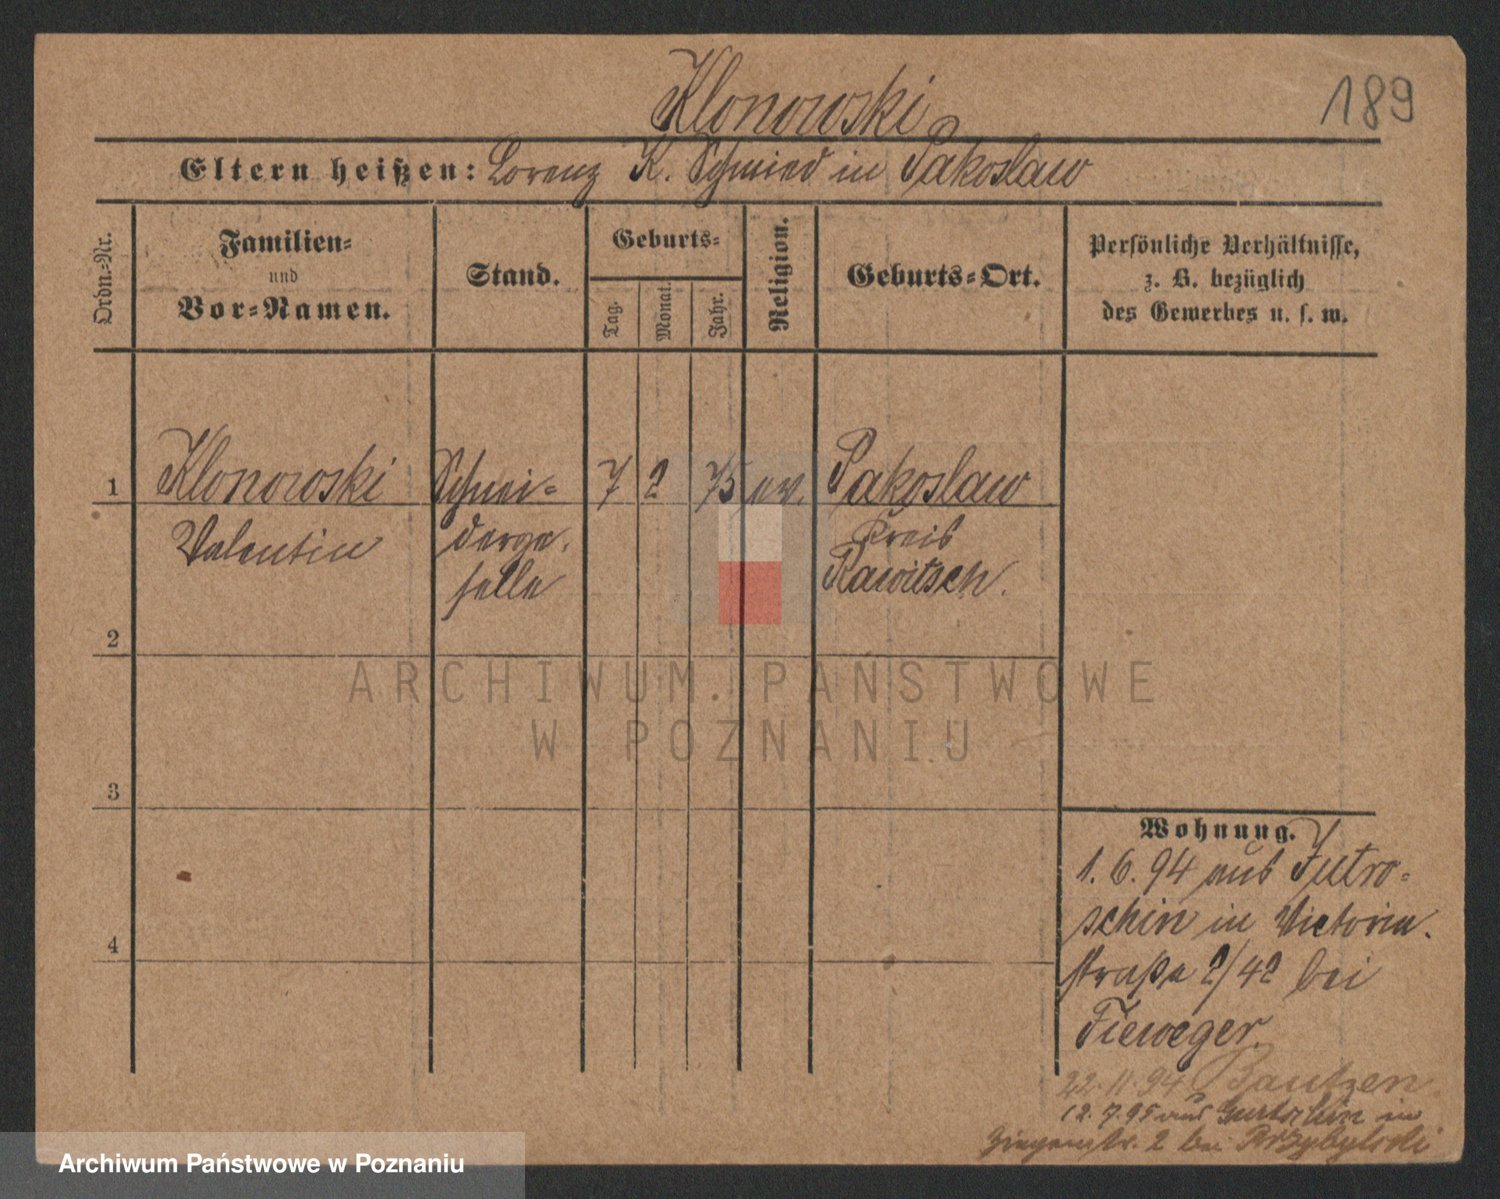 Klonowski
189
Eltern heißen: Lorenz K. Schmied in Pakoslaw
Ordn.=Nr.
Familien=
und
Vor=Namen.
Stand.
Geburts=
Tag.
Monat.
Jahr.
Religion.
Geburts=Ort.
Persönliche Verhältnisse,
z. B. bezüglich
des Gewerbes u. s. w.
1 Klonowski Schnei= 7 2 75 Pakoslaw
Valentin derge. Kreis
selle Rawitsch.
2
3
4
Wohnung.
1. 6. 94 aus Jutro=
schin in Victoria.
straße 2/42 bei
Tieweger.
22. 11. 94 Bautzen
12. 7. 95 aus in
2 bei Przybylski
ARCHIWUM PAŃSTWOWE
W POZNANIU
Archiwum Państwowe w Poznaniu